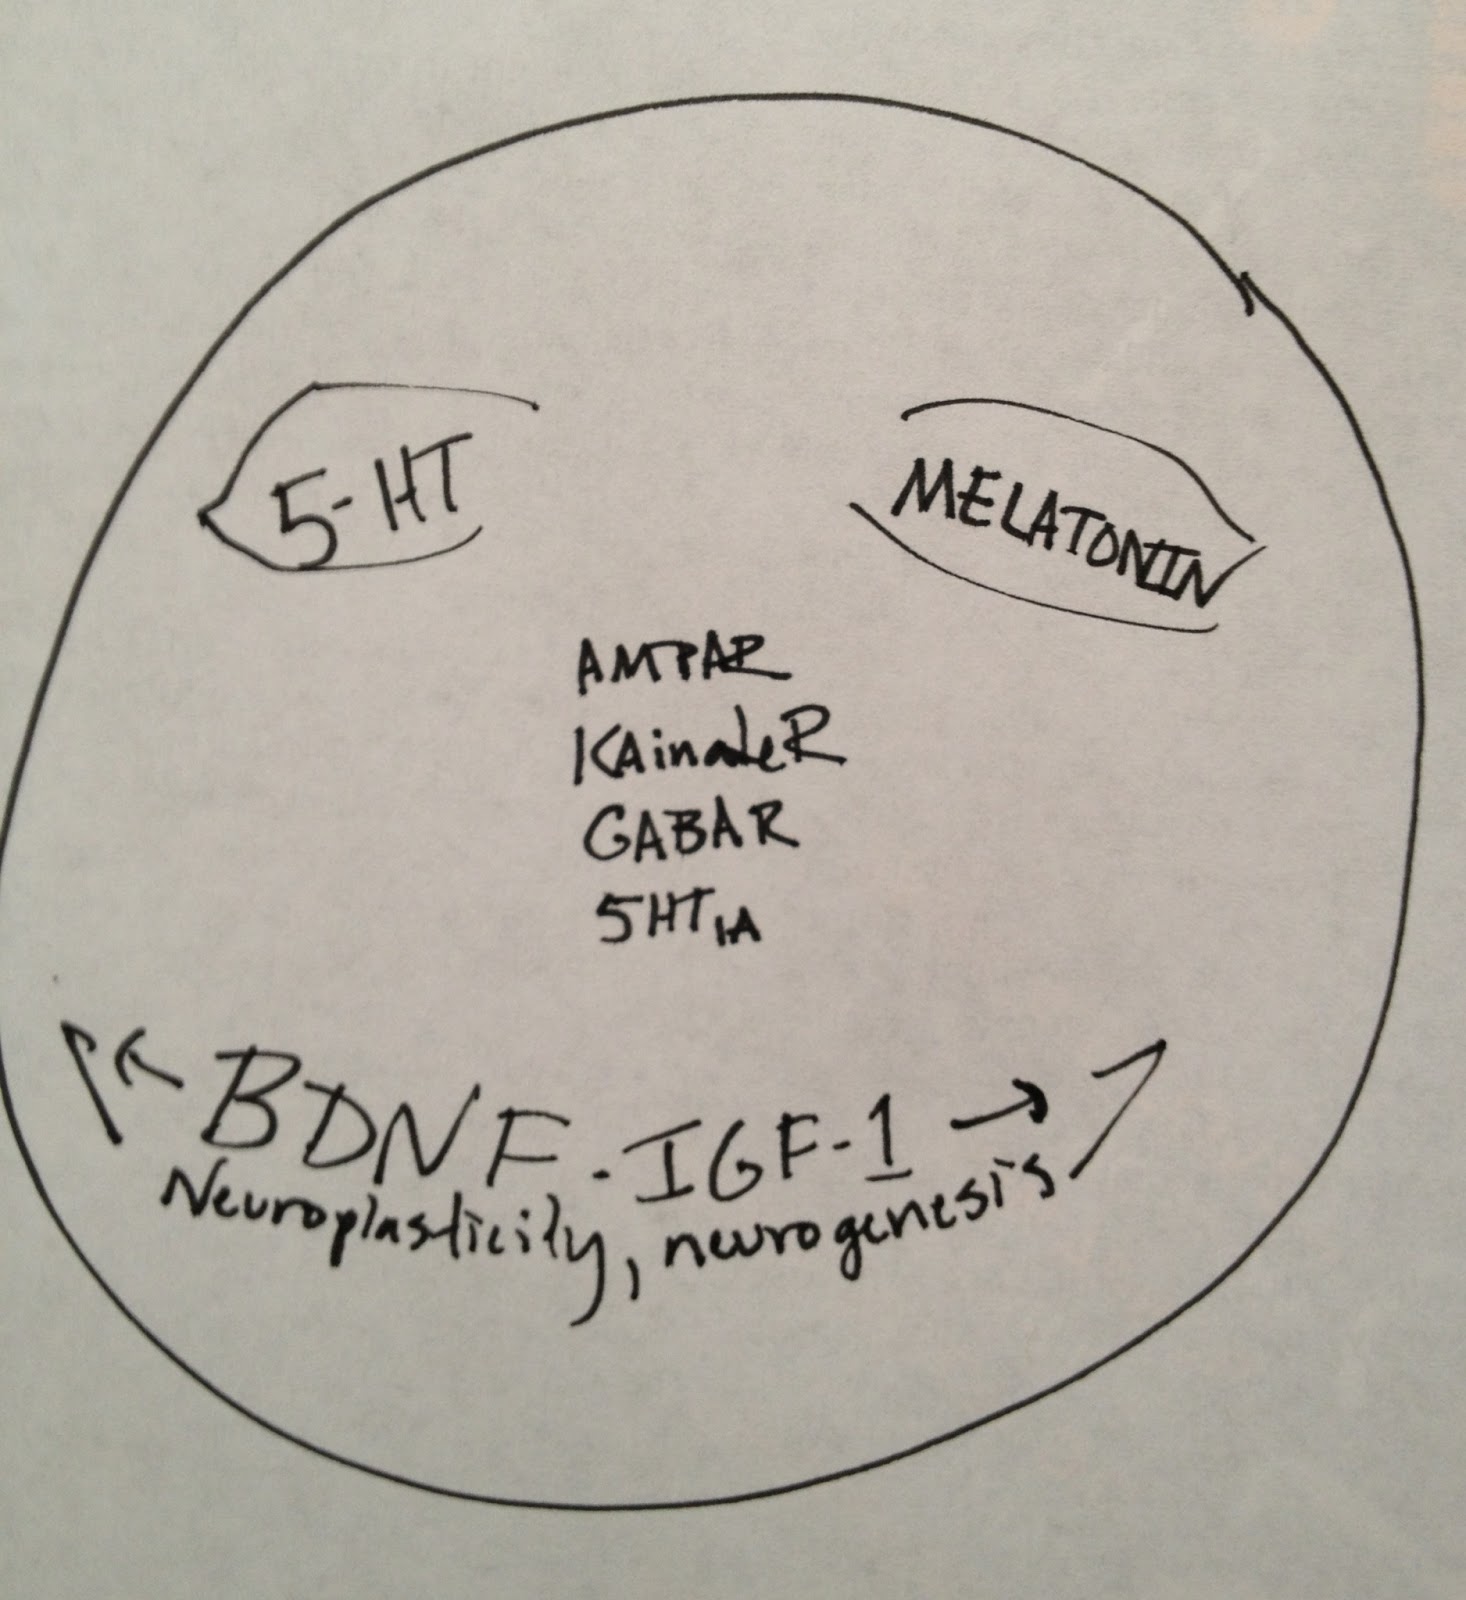 5-HT
MELATONIN
AMPAR
KAinateR
GABAR
5HT1A
BDNF-IGF-1 →
Neuroplasticity, neurogenesis